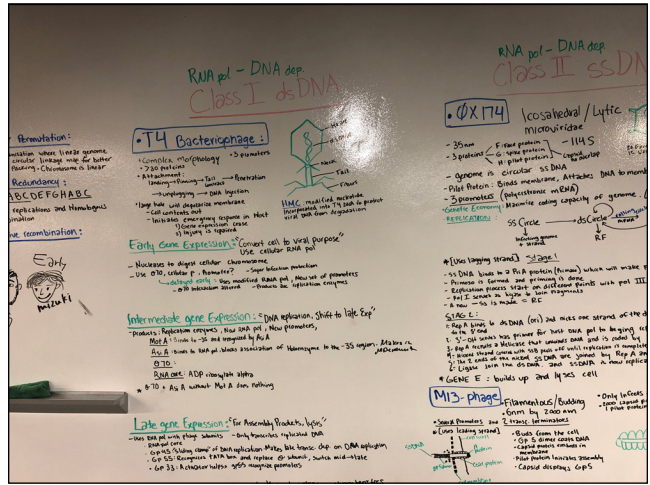 Permutation:
where linear genome
circular linkage map for better
packing. Chromosome is linear
Redundancy:
ABCDEFGHABC
replications and homologous
recombination:
Early
mizuki
RNA pol - DNA dep.
Class I dsDNA
• T4 Bacteriophage:
• Complex morphology
• 3 promoters
• Attachment:
landing → Pinning → Tail contract → Penetration
→ unplugging → DNA injection
• large hole will depolarize membrane
- Cell contents out
- Initiates emergency response in Host
1) Gene expression cease
2) Injury is repaired
Head
dsDNA
Neck
Tail
Fibers
HMC: modified nucleotide
incorporated into T4 DNA to protect
viral DNA from degradation
Early Gene Expression: "Convert cell to Viral Purpose"
Use cellular RNA pol
- Nucleases to digest cellular Chromosome
- Use σ70, cellular p. Promoter?
- Super Infection protection
delayed early: Uses modified RNA pol, New set of promoters
- σ70 interaction altered
- Produces the replication enzymes
Intermediate gene Expression: "DNA replication, Shift to late Exp"
- Products: Replication enzymes, New RNA pol, New promoters,
Mot A: Binds to -35 and recognized by AsiA
AsiA: Binds to RNA pol: blocks association of Holoenzyme to the -35 region.
σ70:
RNA core: ADP ribosylate alpha
* σ70 + AsiA without MotA does nothing
Late gene Expression: "For Assembly Products, lysis"
- Uses RNA pol with phage subunits
- Only transcribes replicated DNA
RNA pol core
• GP45 "sliding clamp" of DNA replication. Makes late transc. dep. on DNA replication
• GP 55: Recognizes TATA box and replace σ subunit, switch mid → late
• GP 33: Activator helps gp55 recognize promoters
RNA pol - DNA dep.
Class II ssDN
• ØX174
Icosahedral / Lytic
microviridae
- 35nm
- 3 proteins
F: Face protein
G: spike protein
H: pilot protein
capsid
- 114S
no overlap
- genome is circular ssDNA
- Pilot Protein: Binds membrane, Attaches DNA to mem
- 3 promoters (polycistronic mRNA)
- Genetic Economy: Maximize coding capacity of genome.
- REPLICATION:
SS Circle
ds Circle
Infecting genome
+ strand
RF
* [Uses lagging strand] Stage 1
- ss DNA binds to a PriA protein (Primase) which will make
- Primosome is formed and priming is done
- Replication process start on different points with pol III
- Pol I serves as ligase to join fragments
- A new - SS is made = RF
STAGE 2:
1: Rep A binds to dsDNA (ori) and nicks one strand of the
to the 5' end
2: 3'-OH serves has primer for host DNA pol to begin
3: Rep A recruits a Helicase that unwinds DNA and is coded by
4: Nicked strand coated with SSB peels off until replication is complete
5: The 2 ends of the nicked ssDNA are joined by Rep A an
6: Ligase join the dsDNA, and ssDNA a new replica
* GENE E: builds up and lyses cell
M13-phage
• Filamentous / Budding
• 6nm by 200 nm
• Only Infects
2000 capsid
1 pilot protein
* Several Promoters and 2 transc. terminators
* [uses leading strand]
• Buds from the cell
• GP 5 dimer coats DNA
- Capsid protein embeds in
membrane
- Pilot Protein initiates assembly
- Capsid displaces GP5
ssDNA
coat protein